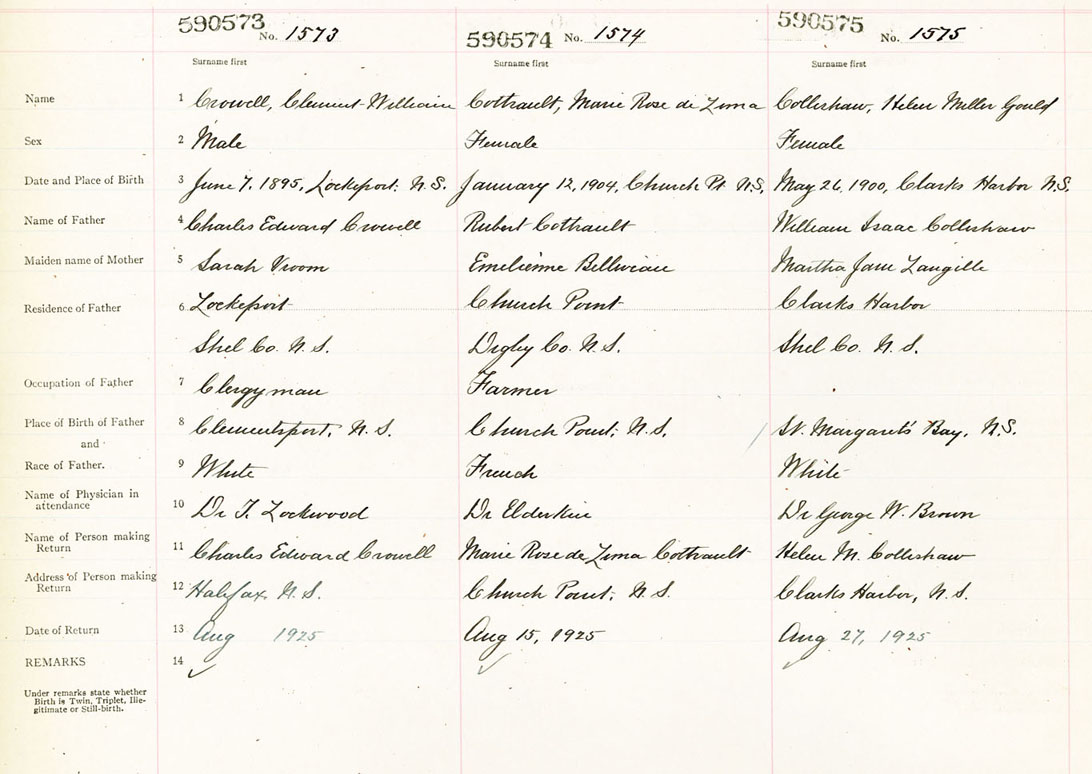 590573 No. 1573 590574 No. 1574 590575 No. 1575
Surname first Surname first Surname first
Name 1 Crowell, Clement William Cottrault, Marie Rose de Zima Collishaw, Helen Miller Gould
Sex 2 Male Female Female
Date and Place of Birth 3 June 7, 1895, Lockeport. N.S. January 12, 1904, Church Pt N.S. May 26, 1900, Clarks Harbor N.S.
Name of Father 4 Charles Edward Crowell Rubert Cottrault William Isaac Collishaw
Maiden name of Mother 5 Sarah Vroom Emelienne Martha Jane Langille
Residence of Father 6 Lockeport Church Point Clarks Harbor
Shel Co. N.S. Digby Co. N.S. Shel Co. N.S.
Occupation of Father 7 Clergyman Farmer
Place of Birth of Father 8 Clementsport, N.S. Church Point, N.S. St. Margaret's Bay, N.S.
and
Race of Father. 9 White French White
Name of Physician in
attendance 10 Dr T. Lockwood Dr Elderkin Dr George W. Brown
Name of Person making
Return 11 Charles Edward Crowell Marie Rose de Zima Cottrault Helen M. Collishaw
Address of Person making
Return 12 Halifax N.S. Church Point, N.S. Clarks Harbor, N.S.
Date of Return 13 Aug 1925 Aug 15, 1925 Aug 27, 1925
REMARKS 14
Under remarks state whether
Birth is Twin, Triplet, Ille-
gitimate or Still-birth.